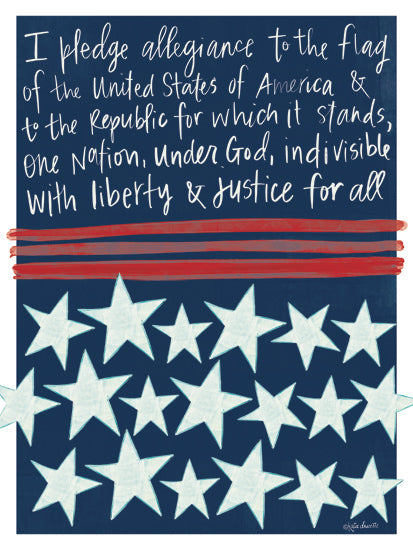 I pledge allegiance to the flag
of the United States of America &
to the Republic for which it stands,
One Nation, Under God, indivisible
With liberty & Justice for all
©katie doucette